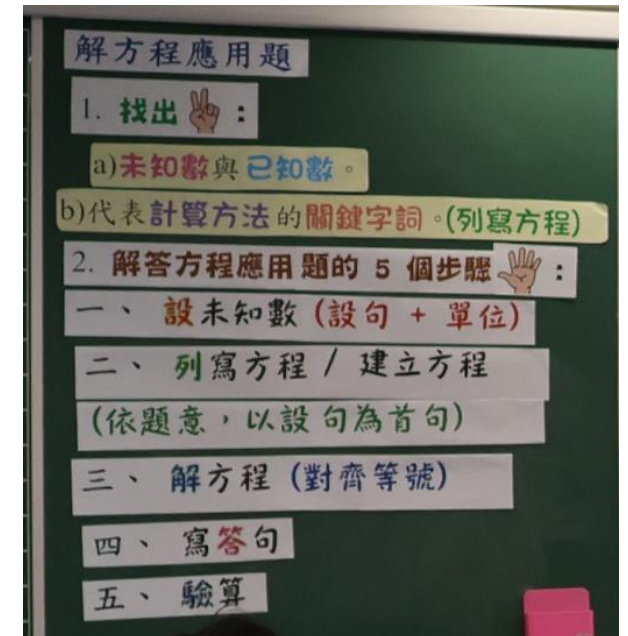 解方程應用題
1. 找出 :
a)未知數與已知數。
b)代表計算方法的關鍵字詞。(列寫方程)
2. 解答方程應用題的 5 個步驟 :
一、 設未知數 (設句 + 單位)
二、 列寫方程 / 建立方程
(依題意，以設句為首句)
三、 解方程 (對齊等號)
四、 寫答句
五、 驗算